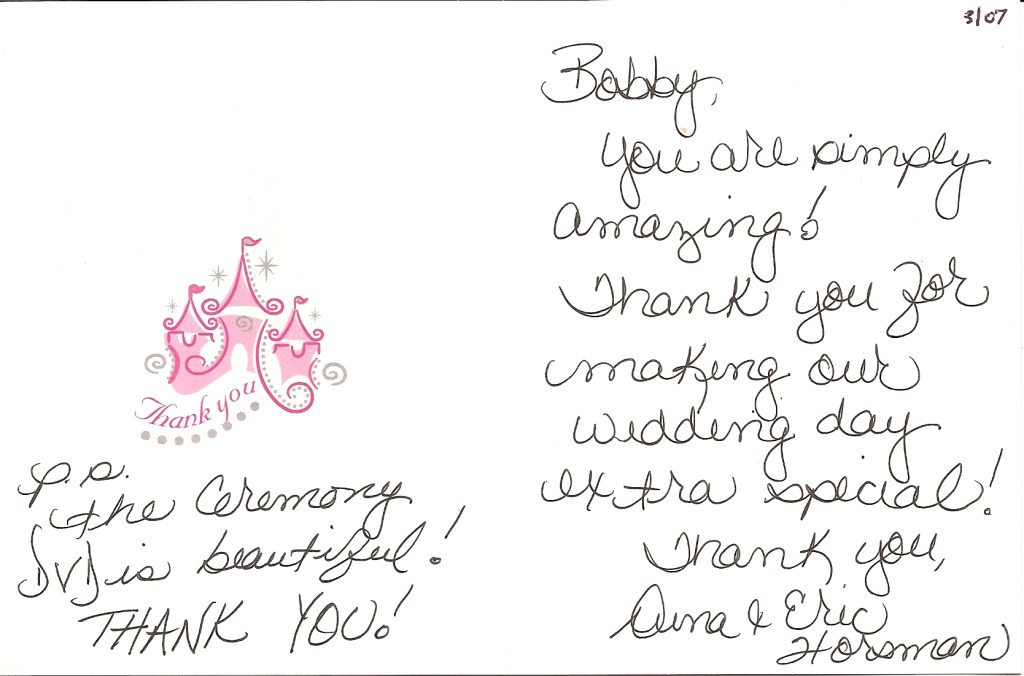 3/07
Bobby,
You are simply
amazing!
Thank you for
making our
wedding day
extra special!
Thank you,
Dina & Eric
Horsman
Thank you
p.s.
the ceremony
DVD is beautiful!
THANK YOU!